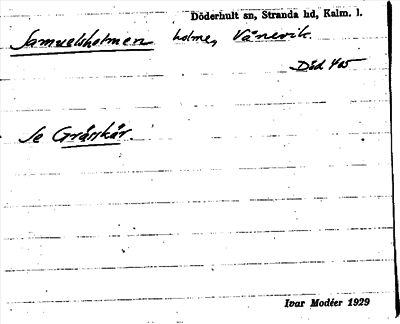 Döderhult sn, Stranda hd, Kalm. l.
Samuelsholmen holme, Vånevik.
Död 405
Se Gråskär.
Ivar Modéer 1929